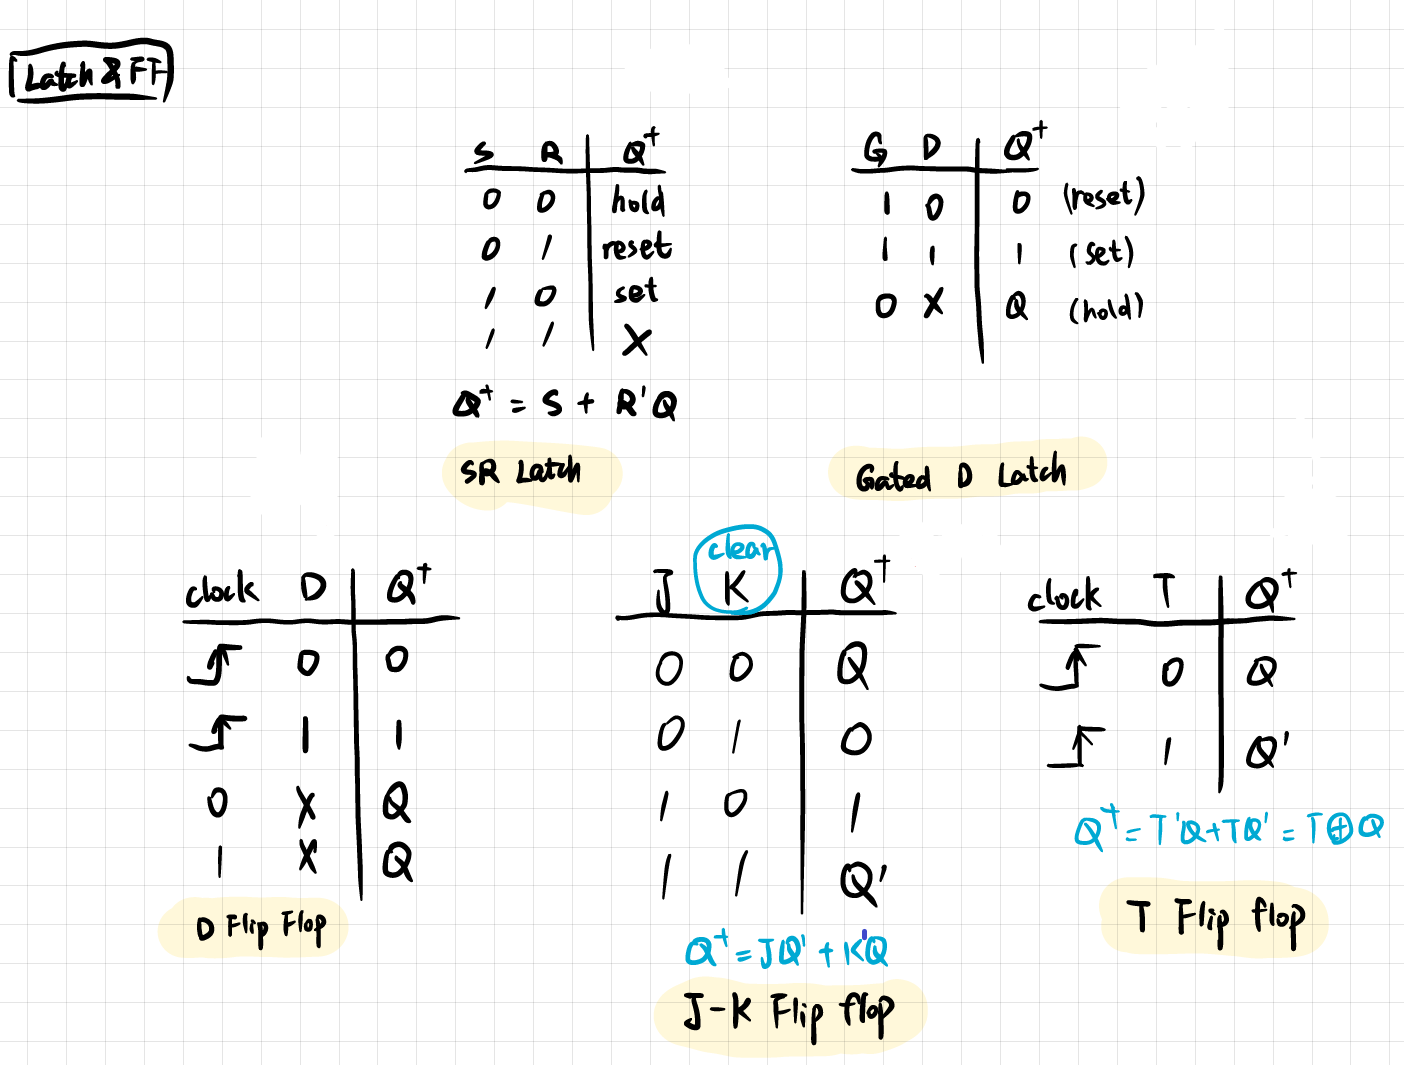 Latch & FF
S R Q⁺
0 0 hold
0 1 reset
1 0 set
1 1 X
Q⁺ = S + R'Q
SR Latch
G D Q⁺
1 0 0 (reset)
1 1 1 (set)
0 X Q (hold)
Gated D Latch
clock D Q⁺
↑ 0 0
↑ 1 1
0 X Q
1 X Q
D Flip Flop
clear
J K Q⁺
0 0 Q
0 1 0
1 0 1
1 1 Q'
Q⁺ = JQ' + K'Q
J-K Flip flop
clock T Q⁺
↑ 0 Q
↑ 1 Q'
Q⁺ = T'Q + TQ' = T⊕Q
T Flip flop